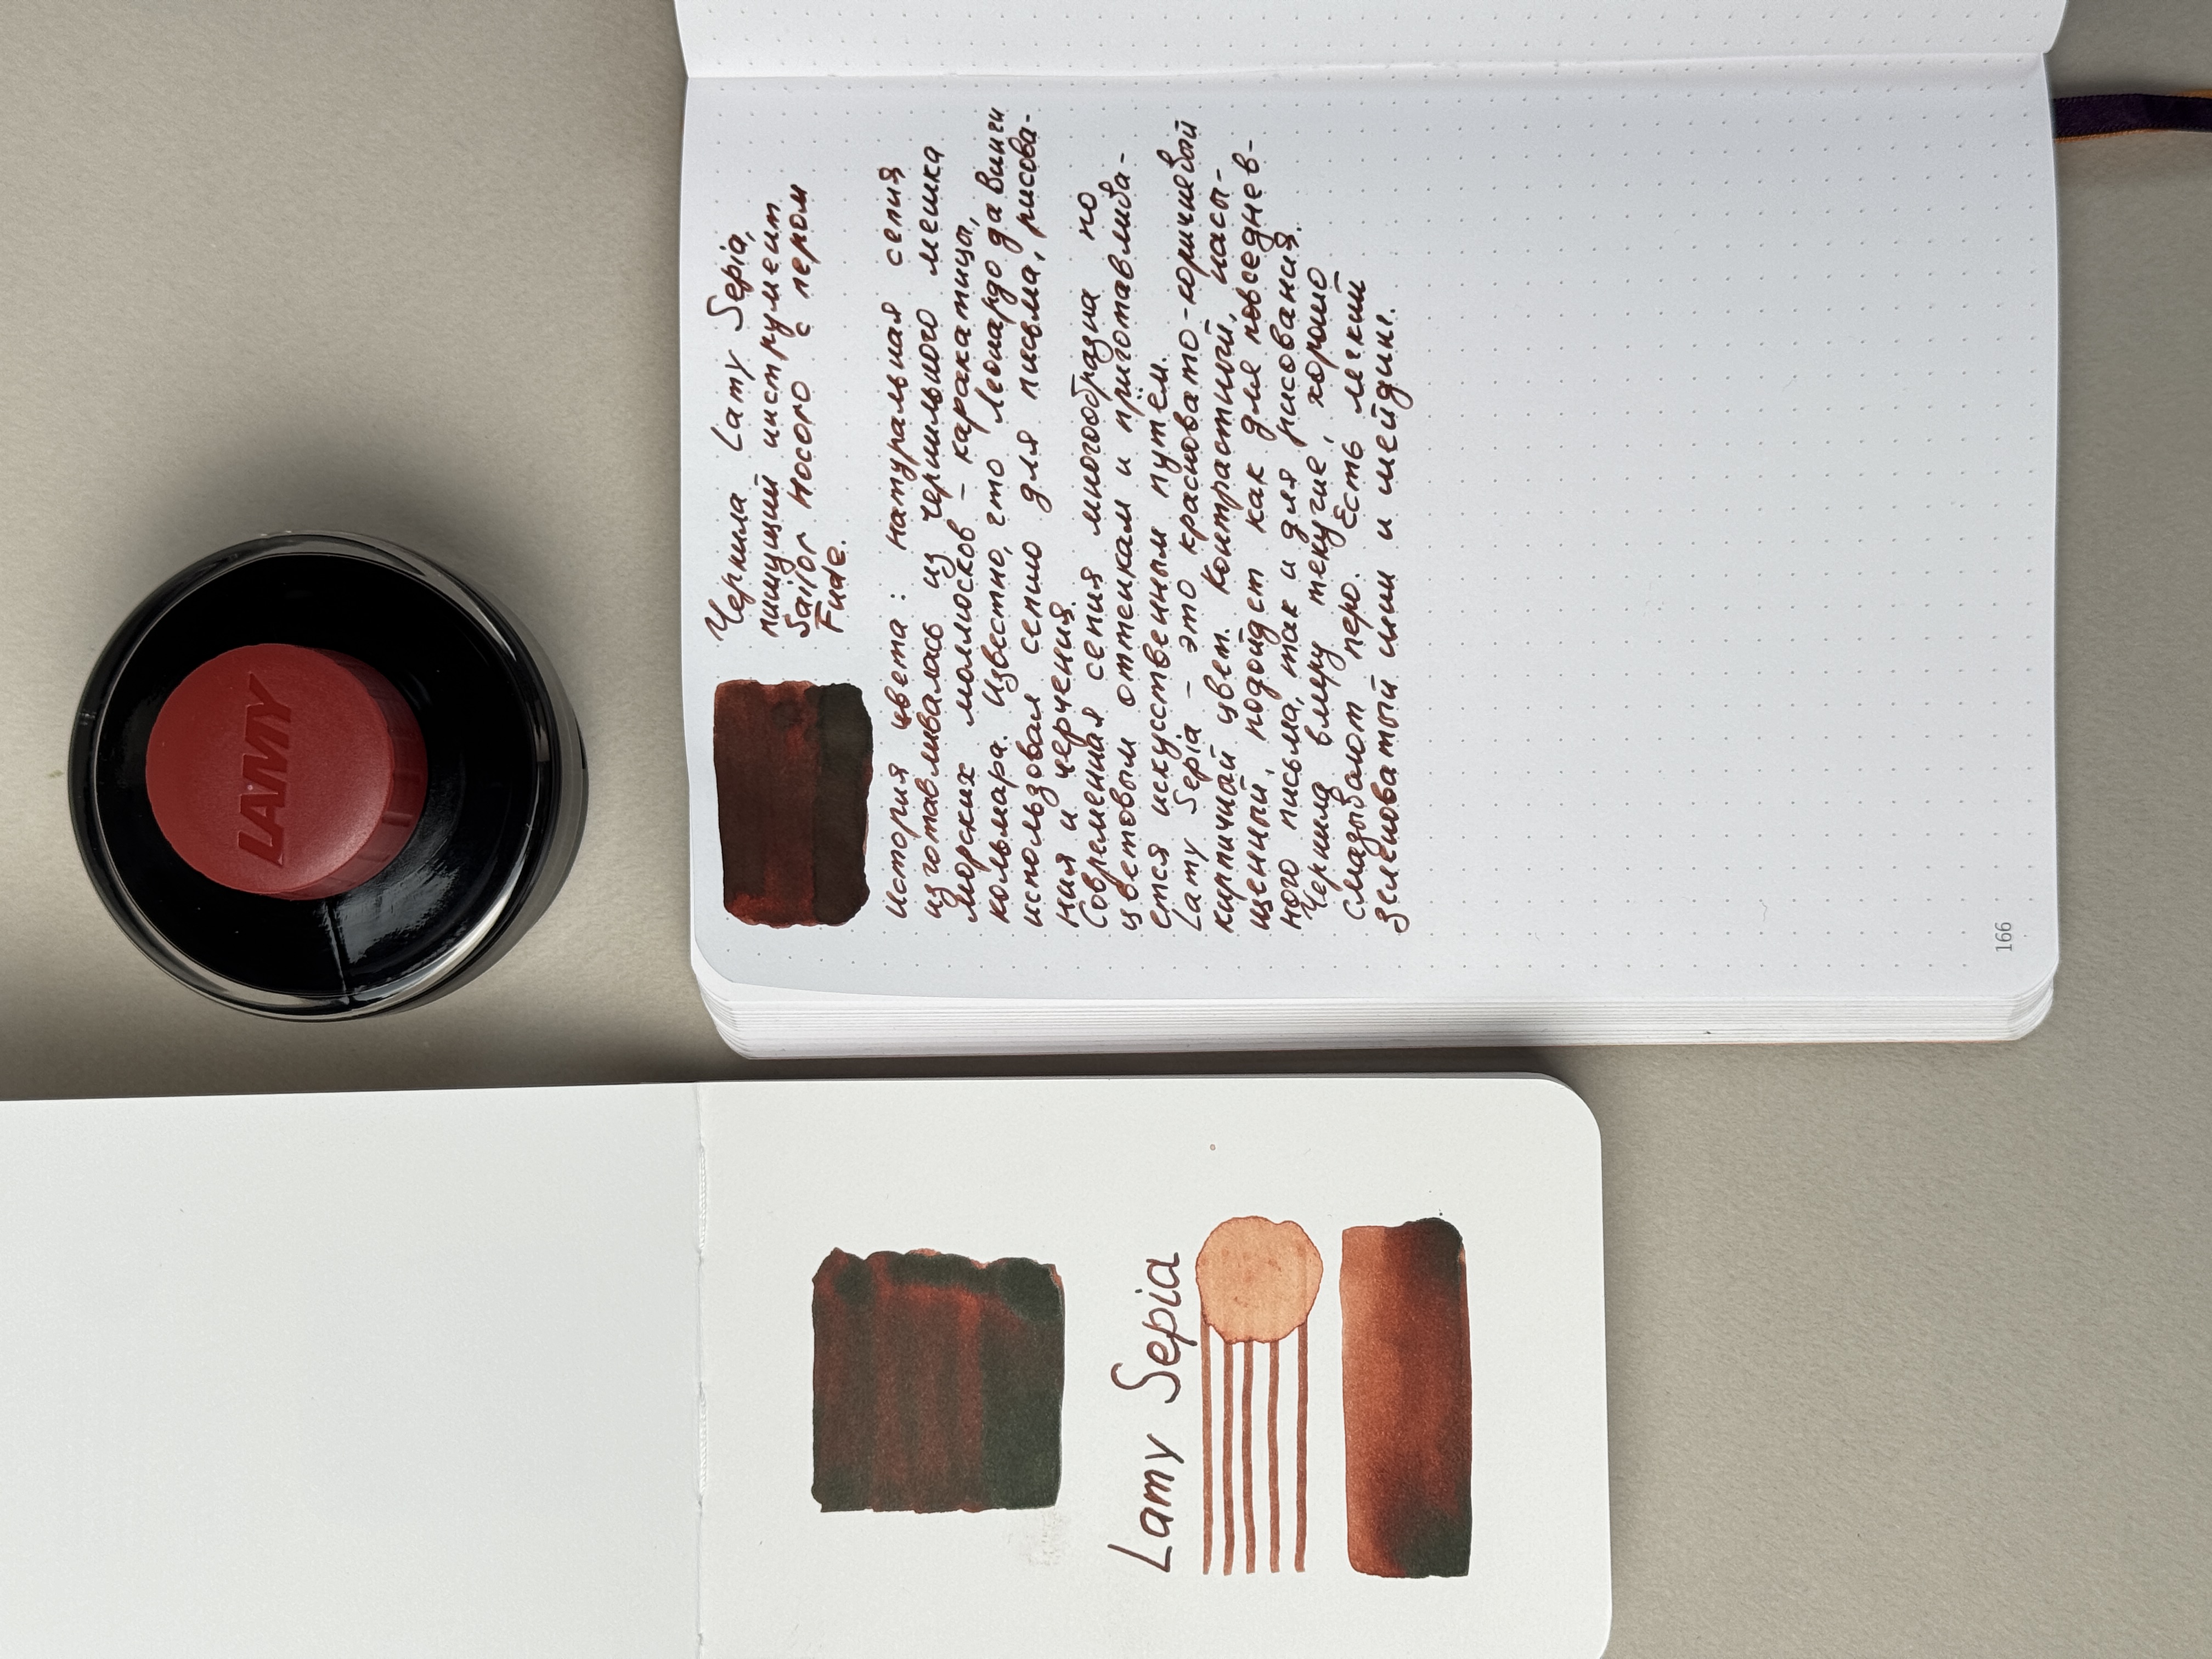 LAMY
Чернила Lamy Sepia,
пишущий инструмент
Sailor Hocoro с пером
Fude.
История цвета: натуральная сепия
изготавливалась из чернильного мешка
морских моллюсков – каракатицы,
кальмара. Известно, что Леонардо да Винчи
использовал сепию для письма, рисова-
ния и черчения.
Современная сепия многообразна по
цветовым оттенкам и приготавлива-
ется искусственным путём.
Lamy Sepia – это красновато-коричневый
кирпичный цвет. Контрастный, насы-
щенный, подойдет как для повседнев-
ного письма, так и для рисования.
Чернила в меру текучие, хорошо
смазывают перо. Есть легкий
зеленоватый шин и шейдинг.
166
Lamy Sepia